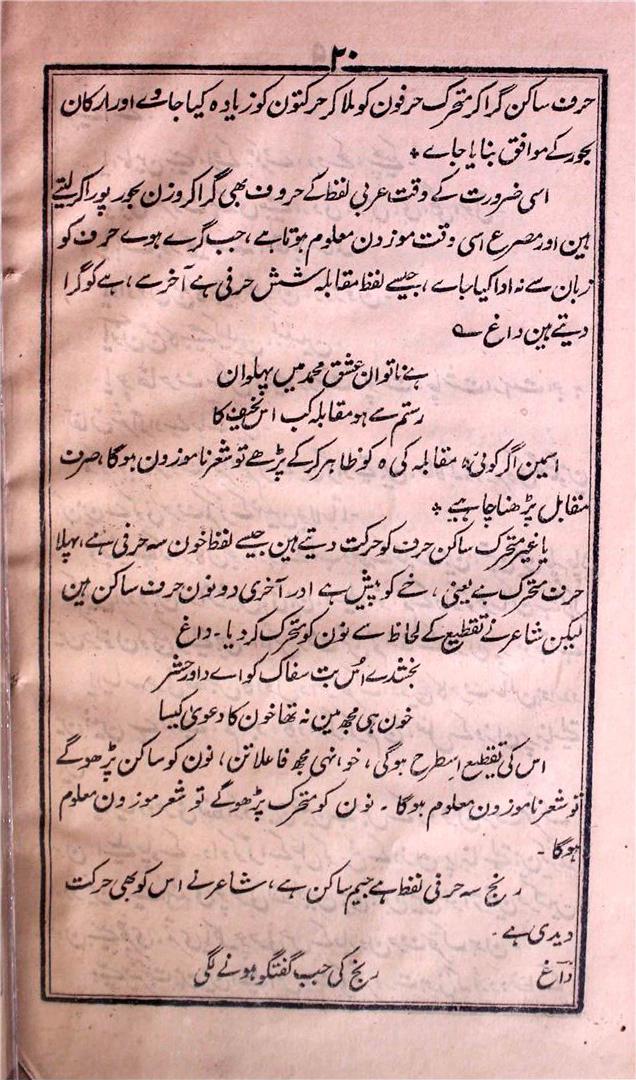 ۲۰
حرف ساکن گرا کر متحرک حرفون کو ملا کر حرکتون کو زیادہ کیا جاوے اور ارکان
بحور کے موافق بنایا جاے ٭
اسی ضرورت کے وقت عربی لفظ کے حروف بھی گرا کر وزن بحور پورا کر لیتے
ہین اور مصرع اسی وقت موزون معلوم ہوتا ہے، جب گرے ہوے حرف کو
زبان سے نہ ادا کیا جاے، جیسے لفظ مقابلہ شش حرفی ہے آخر سے، ہ کو گرا
دیتے ہین داغ ؎
ہے ناتوان عشق محمد میں پہلوان
رستم سے ہو مقابلہ کب اس نحیف کا
اسمین اگر کوئی مقابلہ کی ہ کو ظاہر کر کے پڑھے تو شعر ناموزون ہوگا، صرف
مقابل پڑھنا چاہیے ٭
یا غیر متحرک ساکن حرف کو حرکت دیتے ہین جیسے لفظ خون سہ حرفی ہے، پہلا
حرف متحرک ہے یعنی، خے کو پیش ہے اور آخری دونون حرف ساکن ہین
لیکن شاعر نے تقطیع کے لحاظ سے نون کو متحرک کر دیا ۔ داغ
بخشدے اُس بت سفاک کو اے داور حشر
خون ہی مجھ مین نہ تھا خون کا دعویٰ کیسا
اس کی تقطیع اسطرح ہوگی، خو انہی مجھ فاعلاتن، نون کو ساکن پڑھوگے
تو شعر ناموزون معلوم ہوگا ۔ نون کو متحرک پڑھوگے تو شعر موزون معلوم
ہوگا ۔
رنج سہ حرفی لفظ ہے جیم ساکن ہے، شاعر نے اس کو بھی حرکت
دیدی ہے ۔
داغ رنج کی جب گفتگو ہونے لگی